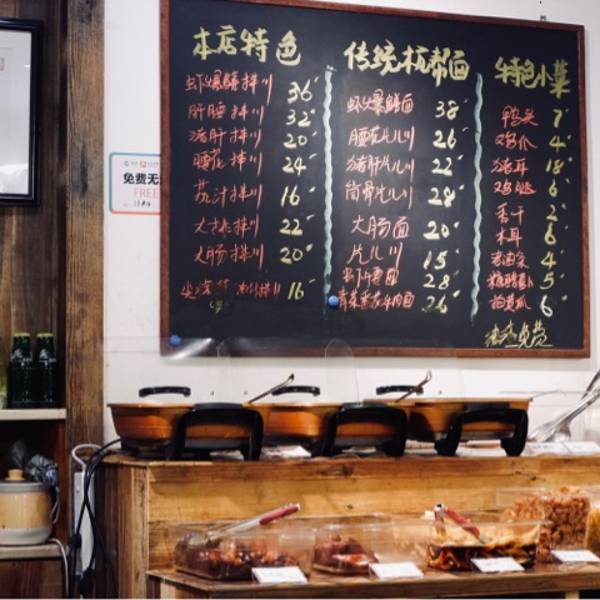 本店特色
虾爆鳝拌川 36
肝腰拌川 32
猪肝拌川 20
腰花拌川 24
茄汁拌川 16
拌川 22
大肠拌川 20
拌川 16
传统杭帮面
虾爆鳝面 38
腰花片儿川 26
猪肝片儿川 22
筒骨片儿川 28
大肠面 20
片儿川 15
28
青菜番茄牛肉面 26
特色小菜
鸭头 7
鸡爪 4
猪耳 18
鸡腿 6
香干 2
木耳 6
4
5
拍黄瓜 6
免费
免费无
FREE